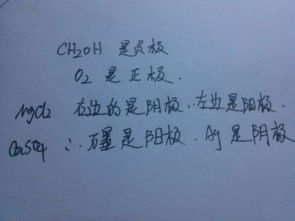 CH2OH 是负极
O2 是正极.
MgCl2 右边的是阴极, 左边是阳极.
CuSO4 ∴ 石墨是阳极, Ag 是阴极